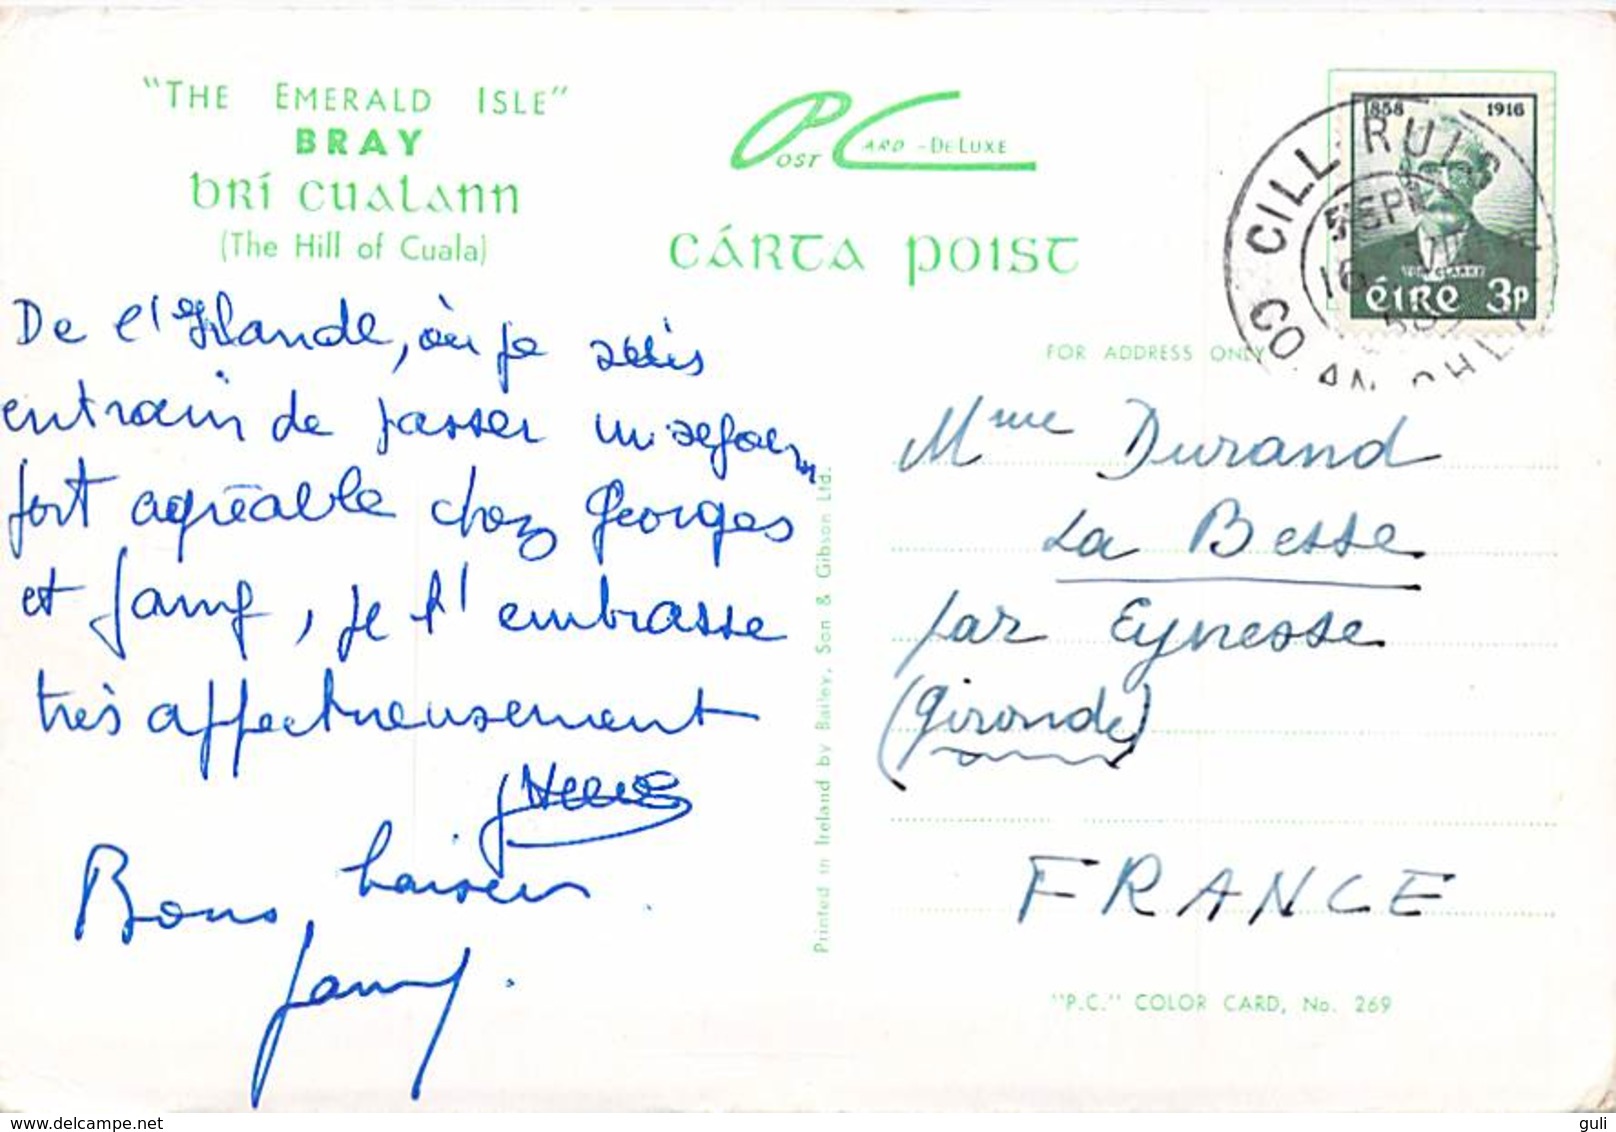 "THE EMERALD ISLE"
BRAY
brí cualann
(The Hill of Cuala)
POST CARD - DE LUXE
CÁRTA POIST
1858 1916
TOM CLARKE
éIRe 3p
CILL RUIS
5 SEP
16
58
CO. AN CHLÁIR
FOR ADDRESS ONLY
De l'Irlande, où je suis
entrain de passer un séjour
fort agréable chez Georges
et Jamy, je t'embrasse
très affectueusement
Hervé
Bons baisers.
Jamy.
Mme Durand
La Besse
par Eynesse
(Gironde)
FRANCE
Printed in Ireland by Bailey, Son & Gibson Ltd.
"P.C." COLOR CARD, No. 269
www.delcampe.net
guli